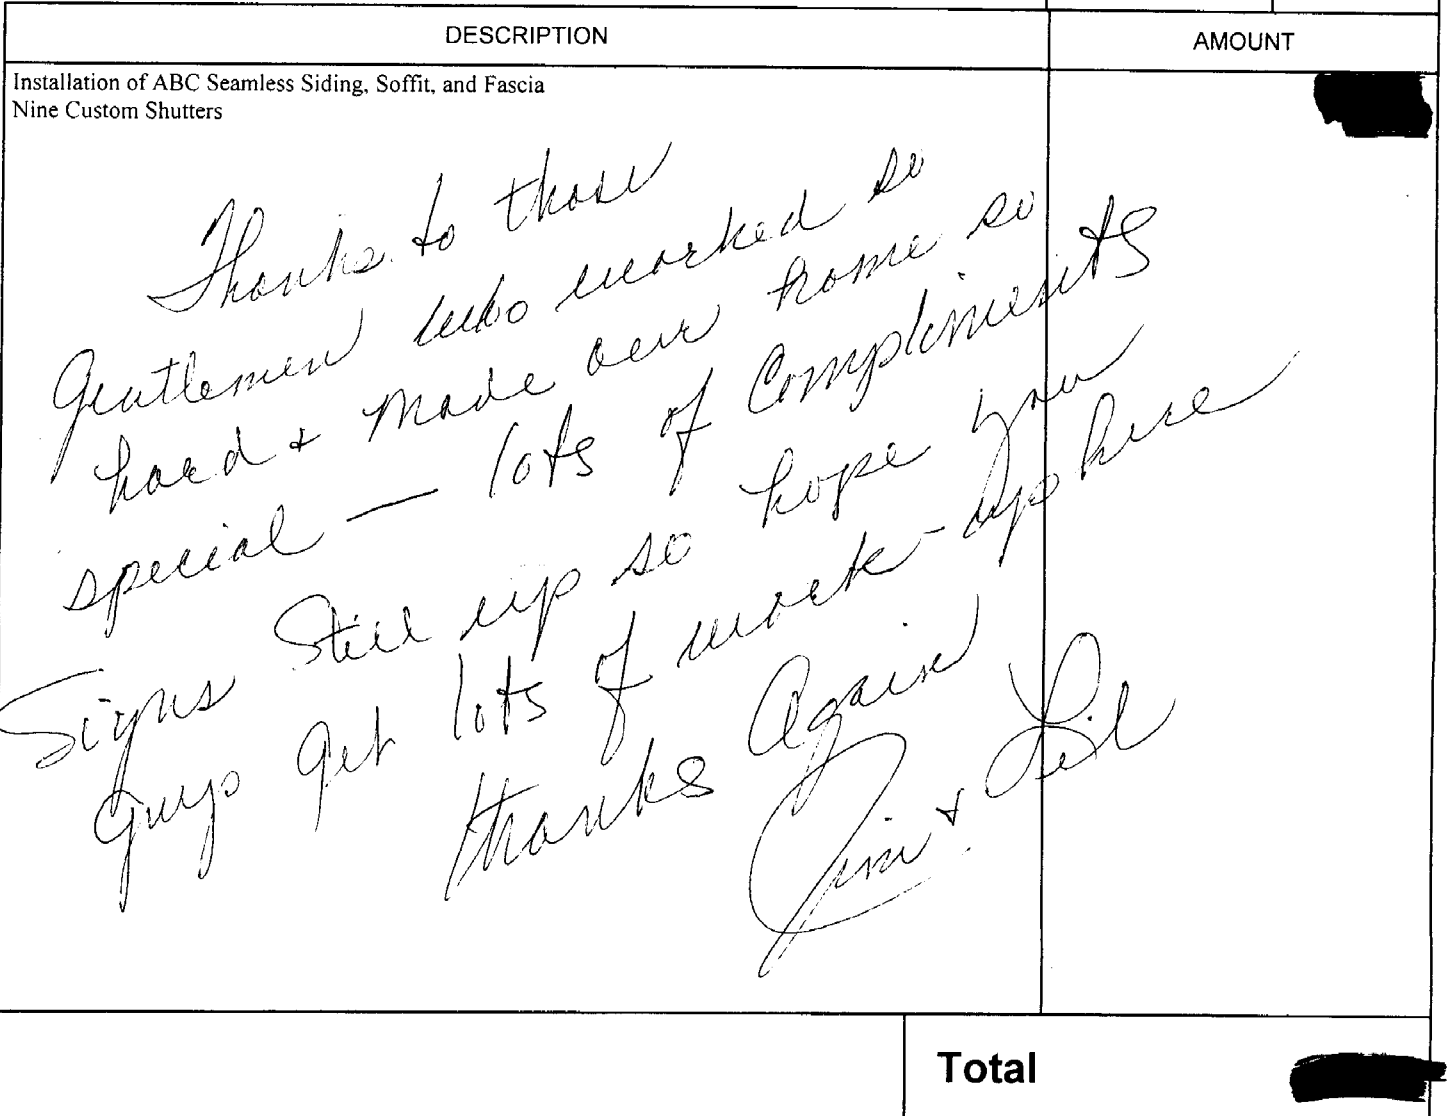 DESCRIPTION AMOUNT
Installation of ABC Seamless Siding, Soffit, and Fascia
Nine Custom Shutters
Thanks to those
Gentlemen who worked so
hard + made our home so
special — lots of Compliments
Signs Still up so hope you
guys get lots of work - up here
thanks Again
Jim + Lil
Total